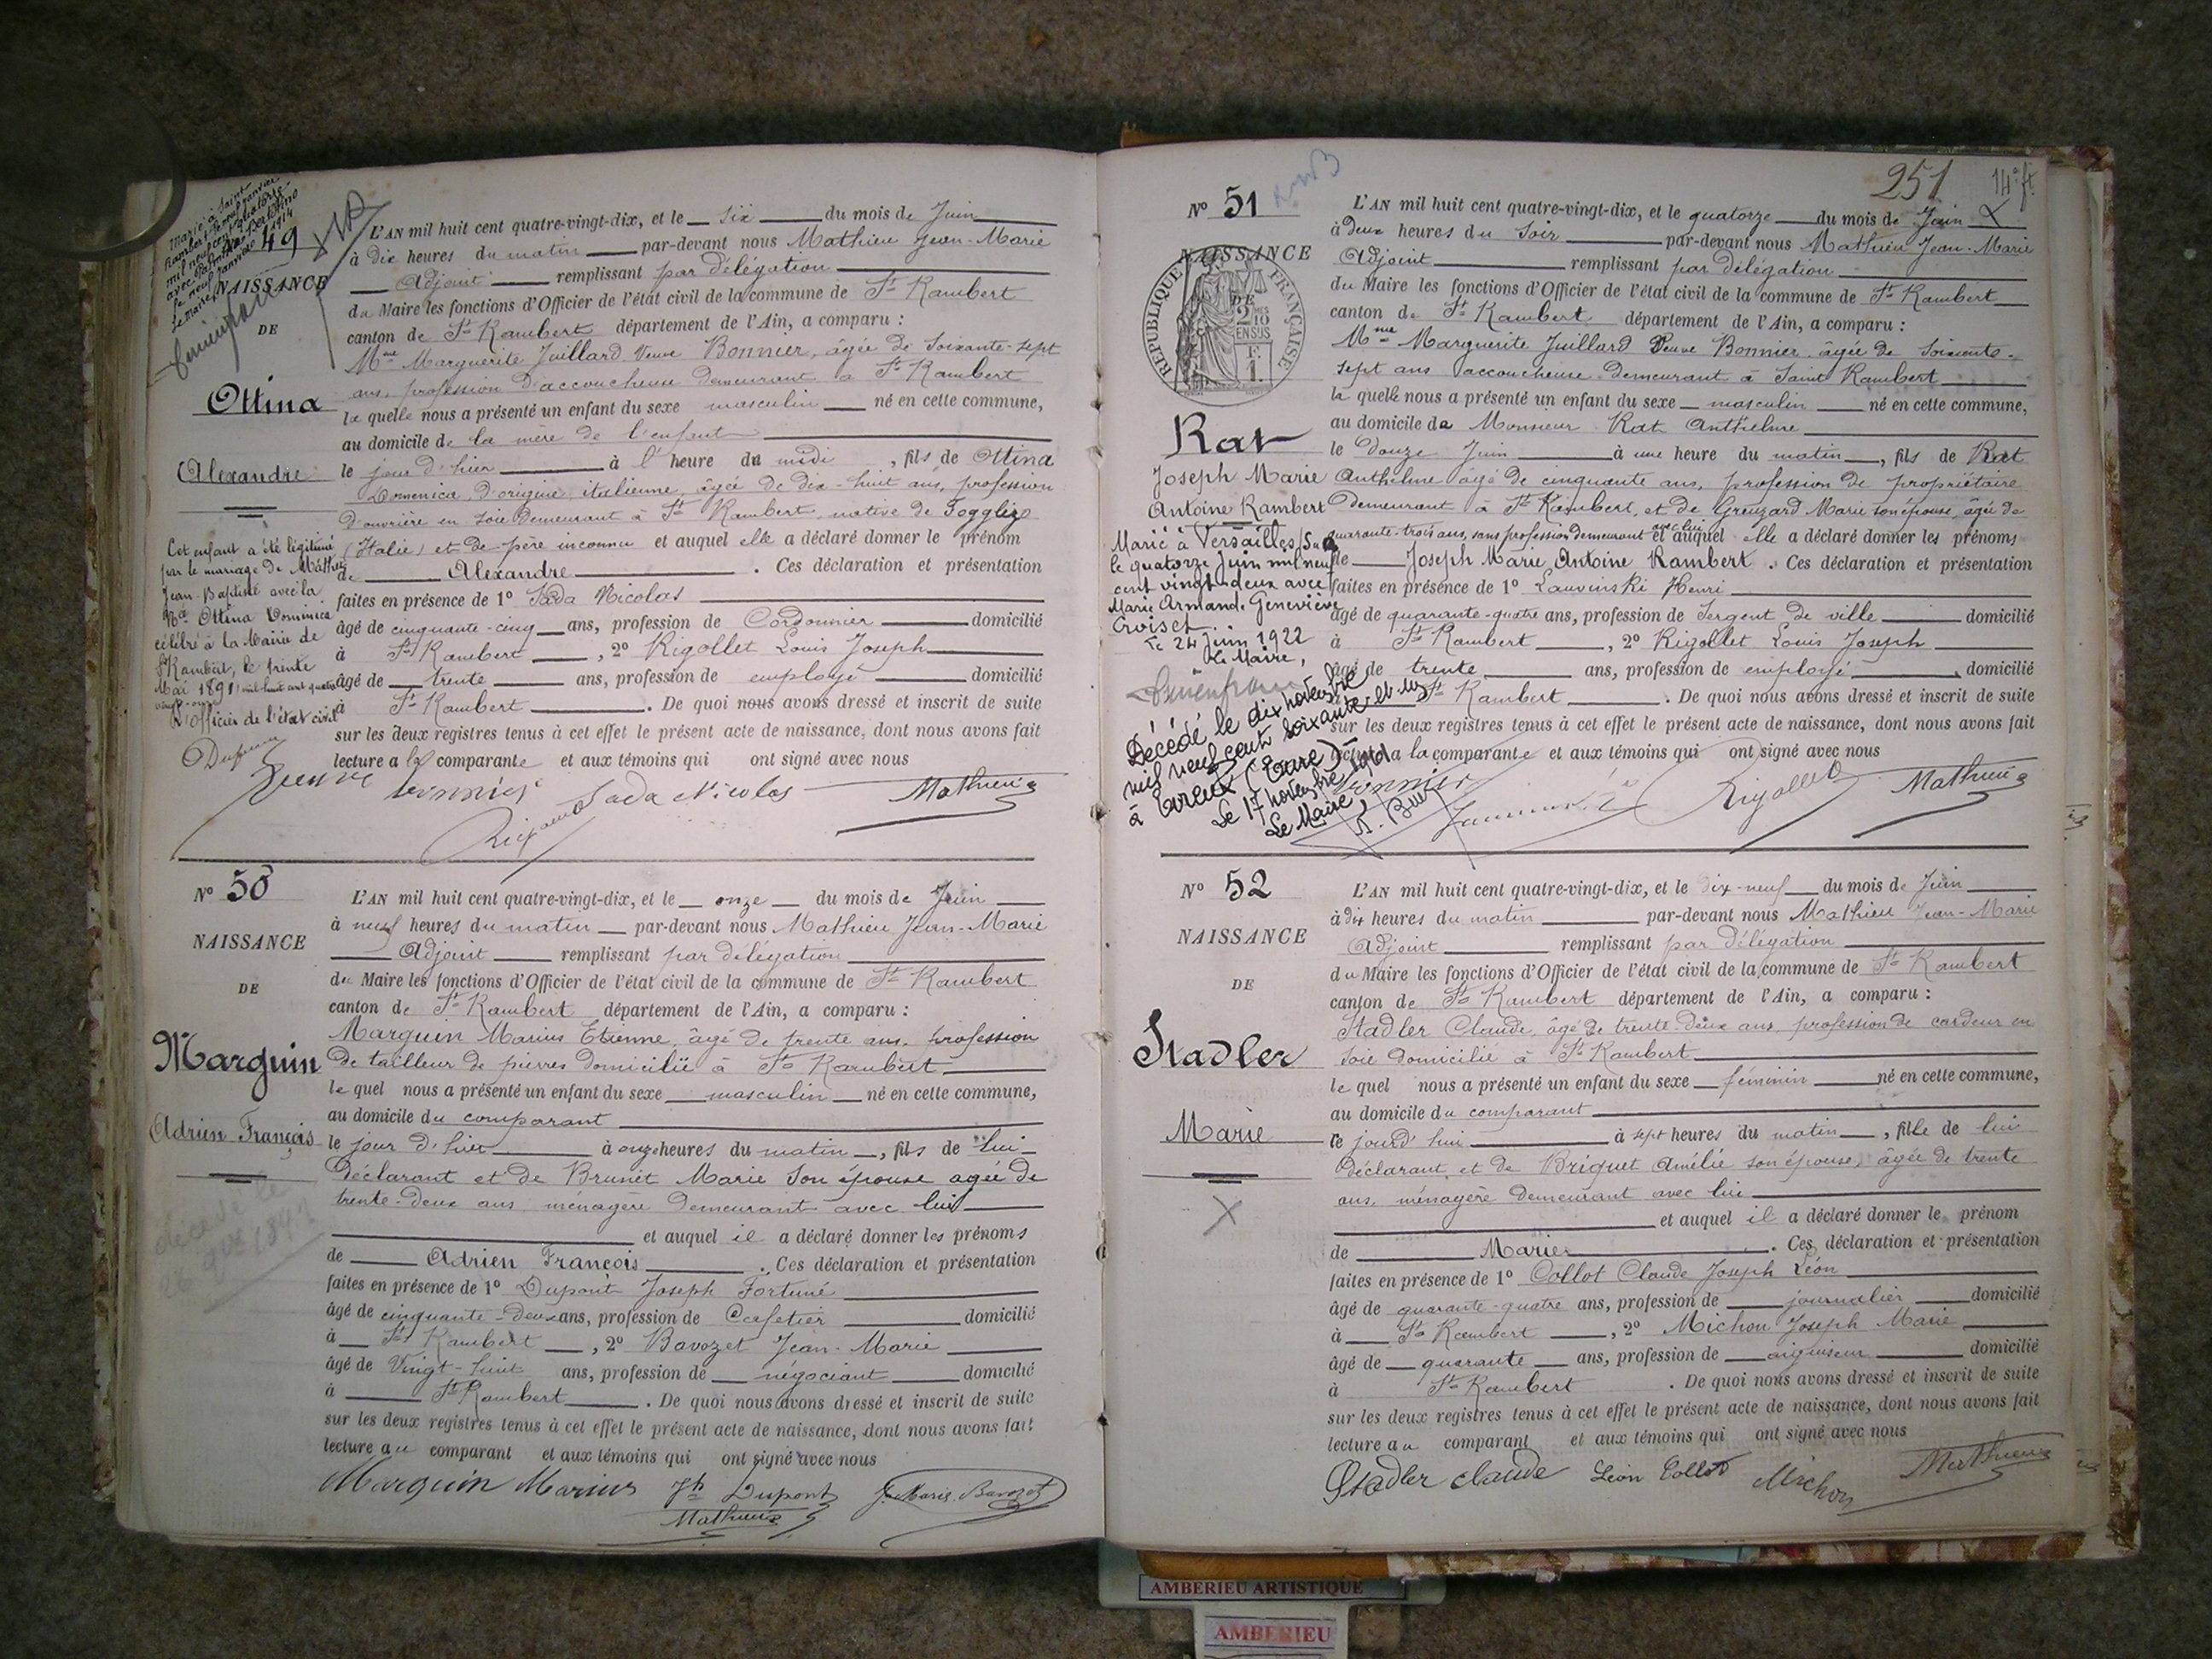 Marié à Saint
Rambert le neuf janvier
mil neuf cent quatorze
avec
le neuf janvier 1914
Le Maire,
49
NAISSANCE
DE
Ottina
Alexandre
Cet enfant a été légitimé
par le mariage de Mathieu
Jean-Baptiste avec la
Ottina Dominica
célébré à la Mairie de
St Rambert, le trente
Mai 1891 mil huit cent quatre
vingt-onze
L'Officier de l'état civil
L'AN mil huit cent quatre-vingt-dix, et le six du mois de Juin
à dix heures du matin par-devant nous Mathieu Jean-Marie
Adjoint remplissant par délégation
du Maire les fonctions d'Officier de l'état civil de la commune de St Rambert
canton de St Rambert département de l'Ain, a comparu :
Mme Marguerite Juillard Veuve Bonnier, âgée de soixante-sept
ans, profession d'accoucheuse demeurant à St Rambert
la quelle nous a présenté un enfant du sexe masculin né en cette commune,
au domicile de la mère de l'enfant
le jour d'hier à l'heure du midi, fils de Ottina
Domenica, d'origine italienne, âgée de dix-huit ans, profession
d'ouvrière en soie demeurant à St Rambert, native de
(Italie) et de père inconnu et auquel elle a déclaré donner le prénom
de Alexandre. Ces déclaration et présentation
faites en présence de 1° Sada Nicolas
âgé de cinquante-cinq ans, profession de Cordonnier domicilié
à St Rambert, 2° Rigollet Louis Joseph
âgé de trente ans, profession de employé domicilié
à St Rambert. De quoi nous avons dressé et inscrit de suite
sur les deux registres tenus à cet effet le présent acte de naissance, dont nous avons fait
lecture à la comparante et aux témoins qui ont signé avec nous
Veuve Bonnier Sada Nicolas Mathieu
N° 50
NAISSANCE
DE
Marguin
Adrien François
décédé le
L'AN mil huit cent quatre-vingt-dix, et le onze du mois de Juin
à neuf heures du matin par-devant nous Mathieu Jean-Marie
Adjoint remplissant par délégation
du Maire les fonctions d'Officier de l'état civil de la commune de St Rambert
canton de St Rambert département de l'Ain, a comparu :
Marguin Marius Etienne, âgé de trente ans, profession
de tailleur de pierres domicilié à St Rambert
le quel nous a présenté un enfant du sexe masculin né en cette commune,
au domicile du comparant
le jour d'hier à onze heures du matin, fils de lui
déclarant et de Brunet Marie son épouse agée de
trente-deux ans ménagère demeurant avec lui
et auquel il a déclaré donner les prénoms
de Adrien François. Ces déclaration et présentation
faites en présence de 1° Dupont Joseph Fortuné
âgé de cinquante-deux ans, profession de Cafetier domicilié
à St Rambert, 2° Bavozet Jean-Marie
âgé de Vingt-huit ans, profession de négociant domicilié
à St Rambert. De quoi nous avons dressé et inscrit de suite
sur les deux registres tenus à cet effet le présent acte de naissance, dont nous avons fait
lecture au comparant et aux témoins qui ont signé avec nous
Marguin Marius Jh Dupont J. Marie Bavozet
Mathieu
251
14e f.
N° 51
NAISSANCE
DE
RÉPUBLIQUE FRANÇAISE
2/10 EN SUS
1 F.
Rat
Joseph Marie
Antoine Rambert
Marié à Versailles
le quatorze Juin mil neuf
cent vingt-deux avec
Marie Armande Geneviève
Croiset.
Le 24 Juin 1922
Le Maire,
Décédé le dix novembre
mil neuf cent soixante et un
à Evreux (Eure)
Le 17 novembre 1961
Le Maire,
L'AN mil huit cent quatre-vingt-dix, et le quatorze du mois de Juin
à deux heures du soir par-devant nous Mathieu Jean-Marie
Adjoint remplissant par délégation
du Maire les fonctions d'Officier de l'état civil de la commune de St Rambert
canton de St Rambert département de l'Ain, a comparu :
Mme Marguerite Juillard Veuve Bonnier âgée de soixante-
sept ans accoucheuse demeurant à Saint Rambert
la quelle nous a présenté un enfant du sexe masculin né en cette commune,
au domicile de Monsieur Rat Anthelme
le douze Juin à une heure du matin, fils de Rat
Anthelme âgé de cinquante ans, profession de propriétaire
demeurant à St Rambert, et de Greuzard Marie son épouse, âgée de
quarante-trois ans, sans profession demeurant avec lui et auquel elle a déclaré donner les prénoms
de Joseph Marie Antoine Rambert. Ces déclaration et présentation
faites en présence de 1° Lauvinski Henri
âgé de quarante-quatre ans, profession de Sergent de ville domicilié
à St Rambert, 2° Rigollet Louis Joseph
âgé de trente ans, profession de employé domicilié
à St Rambert. De quoi nous avons dressé et inscrit de suite
sur les deux registres tenus à cet effet le présent acte de naissance, dont nous avons fait
lecture a la comparante et aux témoins qui ont signé avec nous
Bonnier Rigollet Mathieu
N° 52
NAISSANCE
DE
Stadler
Marie
L'AN mil huit cent quatre-vingt-dix, et le dix-neuf du mois de Juin
à dix heures du matin par-devant nous Mathieu Jean-Marie
Adjoint remplissant par délégation
du Maire les fonctions d'Officier de l'état civil de la commune de St Rambert
canton de St Rambert département de l'Ain, a comparu :
Stadler Claude, âgé de trente-deux ans, profession de cardeur en
soie domicilié à St Rambert
le quel nous a présenté un enfant du sexe féminin né en cette commune,
au domicile du comparant
le jourd'hui à sept heures du matin, fille de lui
déclarant et de Briquet Amélie son épouse, âgée de trente
ans, ménagère demeurant avec lui
et auquel il a déclaré donner le prénom
de Marie. Ces déclaration et présentation
faites en présence de 1° Collot Claude Joseph Léon
âgé de quarante-quatre ans, profession de journalier domicilié
à St Rambert, 2° Michou Joseph Marie
âgé de quarante ans, profession de aiguiseur domicilié
à St Rambert. De quoi nous avons dressé et inscrit de suite
sur les deux registres tenus à cet effet le présent acte de naissance, dont nous avons fait
lecture au comparant et aux témoins qui ont signé avec nous
Stadler claude Léon Collot Michou Mathieu
AMBERIEU ARTISTIQUE
AMBERIEU